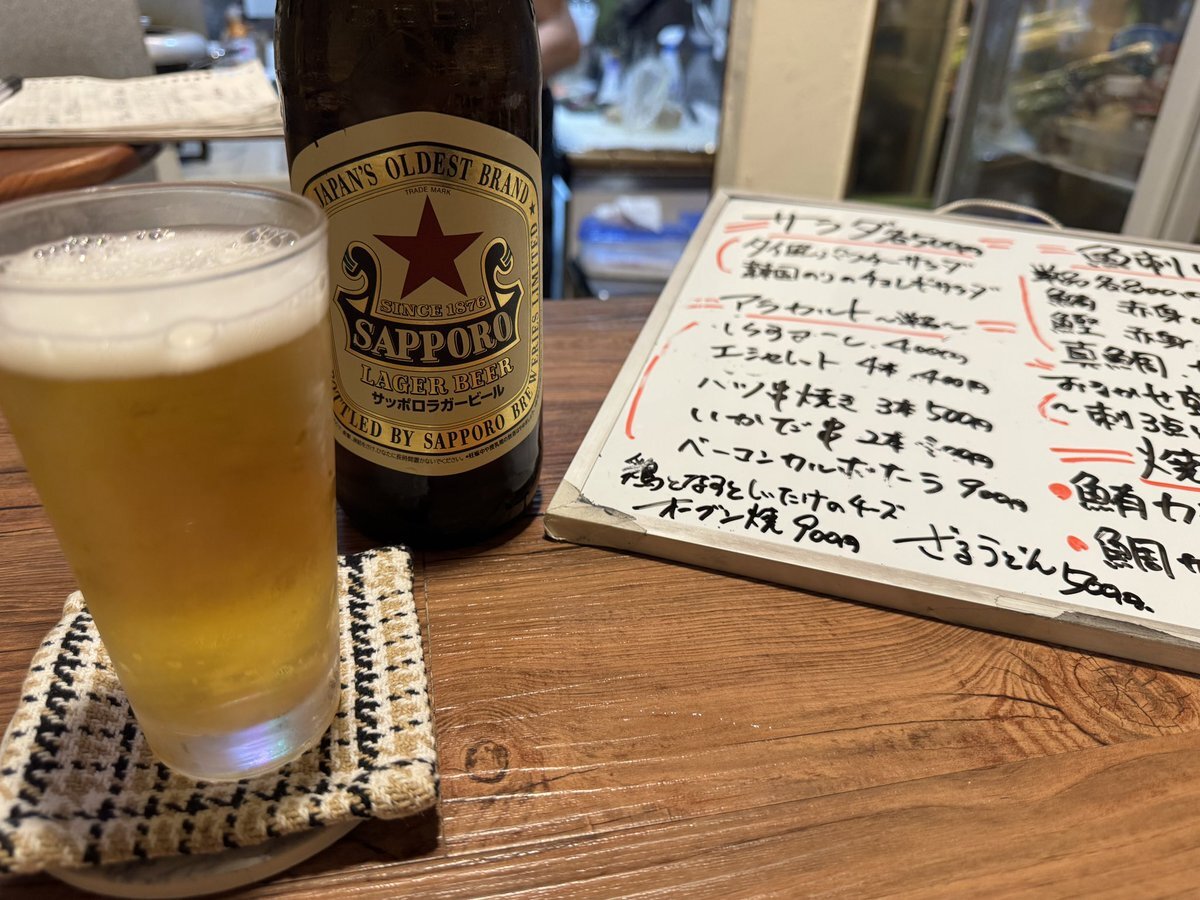 JAPAN'S OLDEST BRAND
TRADE MARK
SINCE 1876
SAPPORO
LAGER BEER
サッポロラガービール
BOTTLED BY SAPPORO BREWERIES LIMITED
サラダ各500円
韓国のりのチョレギサラダ
アラカルト
400円
エシャレット 4本 400円
ハツ串焼き 3本 500円
いかげそ串 2本
ベーコンカルボナーラ 900円
鶏となすとしいたけのチーズ
オーブン焼 900円
ざるうどん
500円
魚刺し
鮪 赤身
鰹 赤身
真鯛
おまかせ
〜刺3点
焼
鮪カ
鯛カ